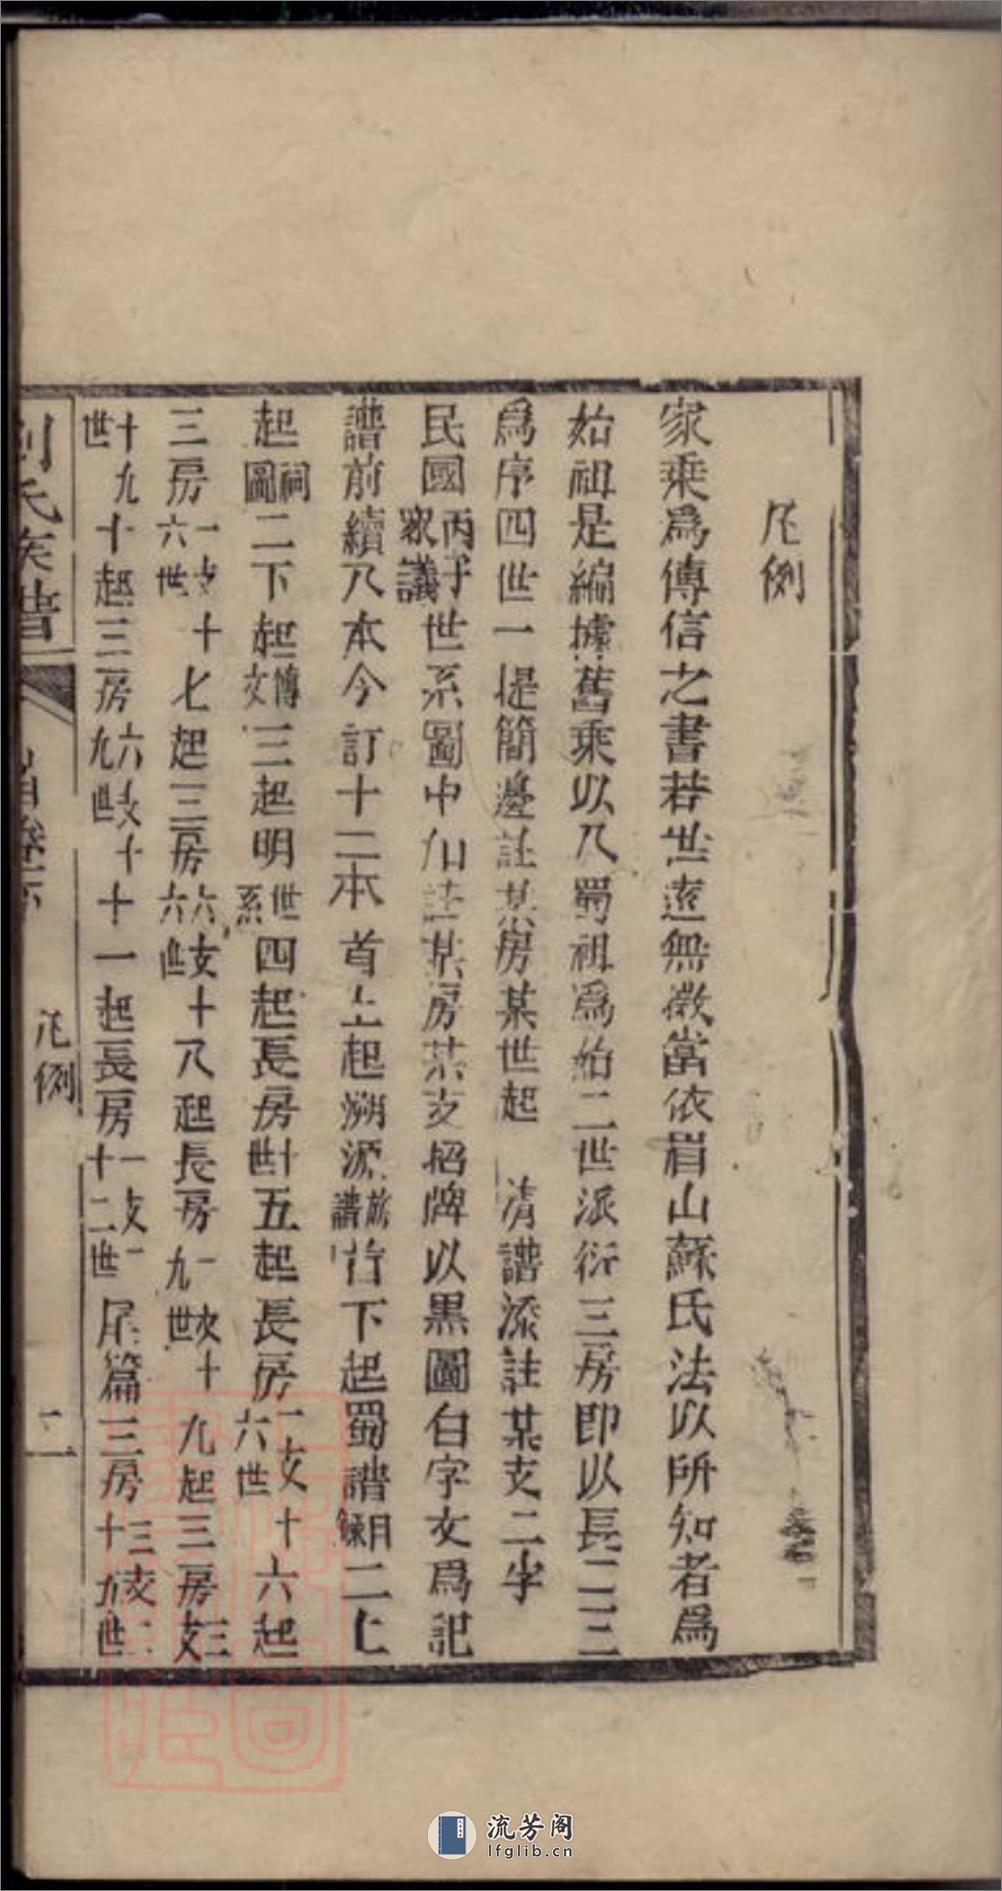 凡例
家乘爲傳信之書若世遠無徵當依眉山蘇氏法以所知者爲
始祖是編據舊乘以入蜀祖爲始二世派衍三房即以長二三
爲序四世一提簡邊註某房某世起 清譜添註某支二字
民國丙子眾議世系圖中加註某房某支招牌以黑圖白字文爲記
譜前續八本今訂十二本首上起溯源族譜首下起蜀譜目錄二上
起祠圖二下起傳文三起明世系四起長房十世五起長房一支六世十六起
三房一支六世十七起三房六支六世十八起長房一支九世十九起三房三支
十九世十起三房六支九世十十一起長房一支十二世一尾篇三房三支十九世二
劉氏族譜
首卷下
凡例
二
流芳阁
lfglib.cn